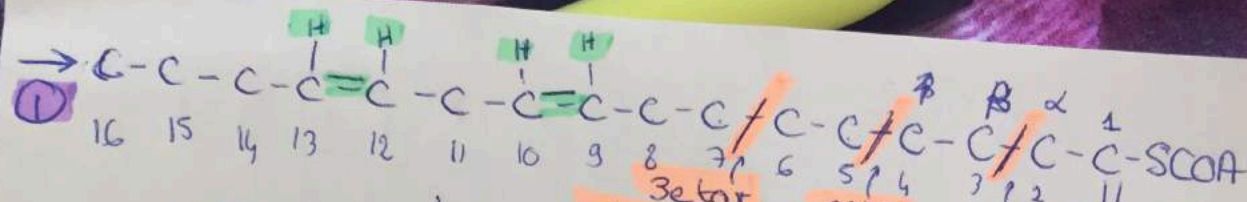 H H H H
→ C - C - C - C = C - C - C = C - C - C / C - C / C - C / C - C - SCOA
β α 1
① 16 15 14 13 12 11 10 9 8 7 6 5 4 3 2 11